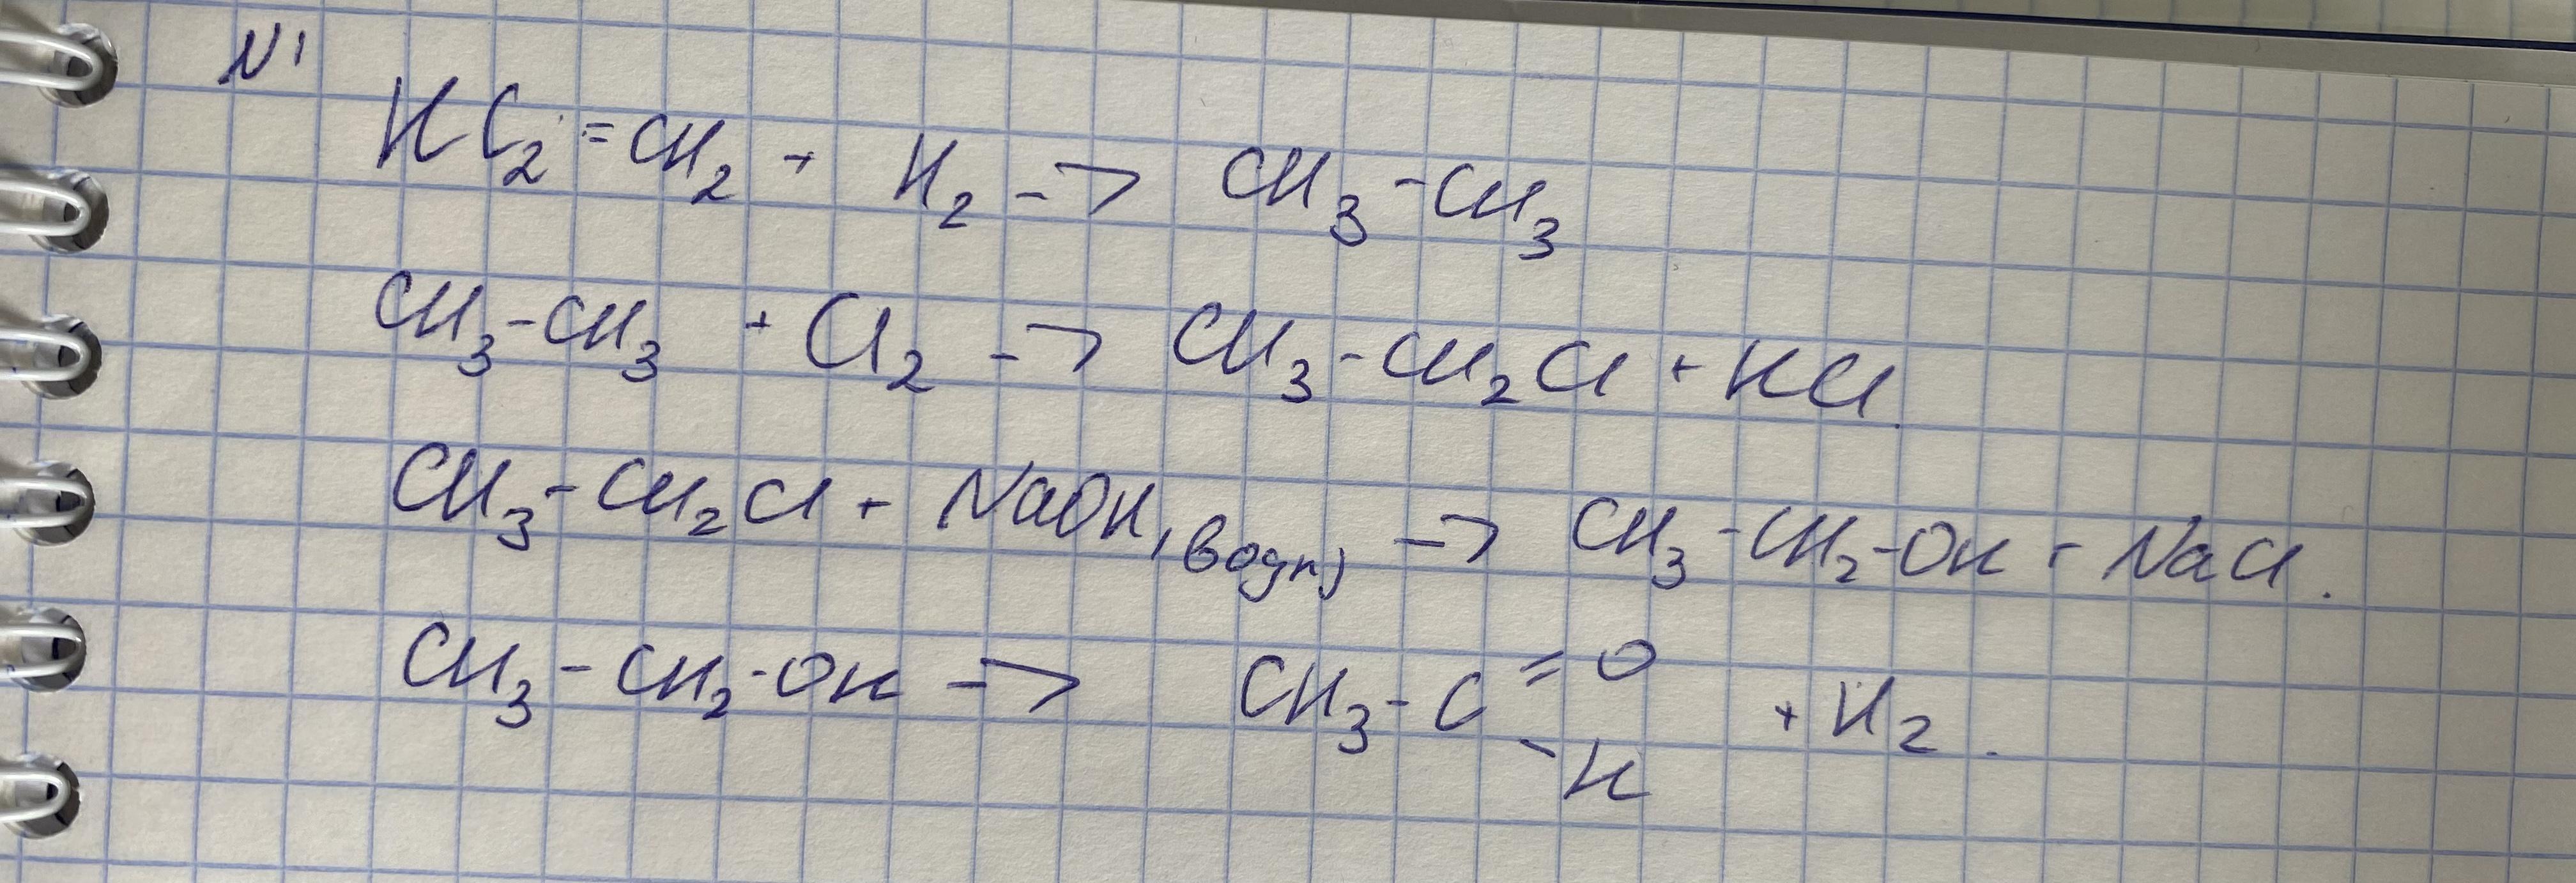 N1
HC₂=CH₂ + H₂ -> CH₃-CH₃
CH₃-CH₃ + Cl₂ -> CH₃-CH₂Cl + HCl.
CH₃-CH₂Cl + NaOH(водн) -> CH₃-CH₂-OH + NaCl.
CH₃-CH₂-OH -> CH₃-C=O + H₂.
-H